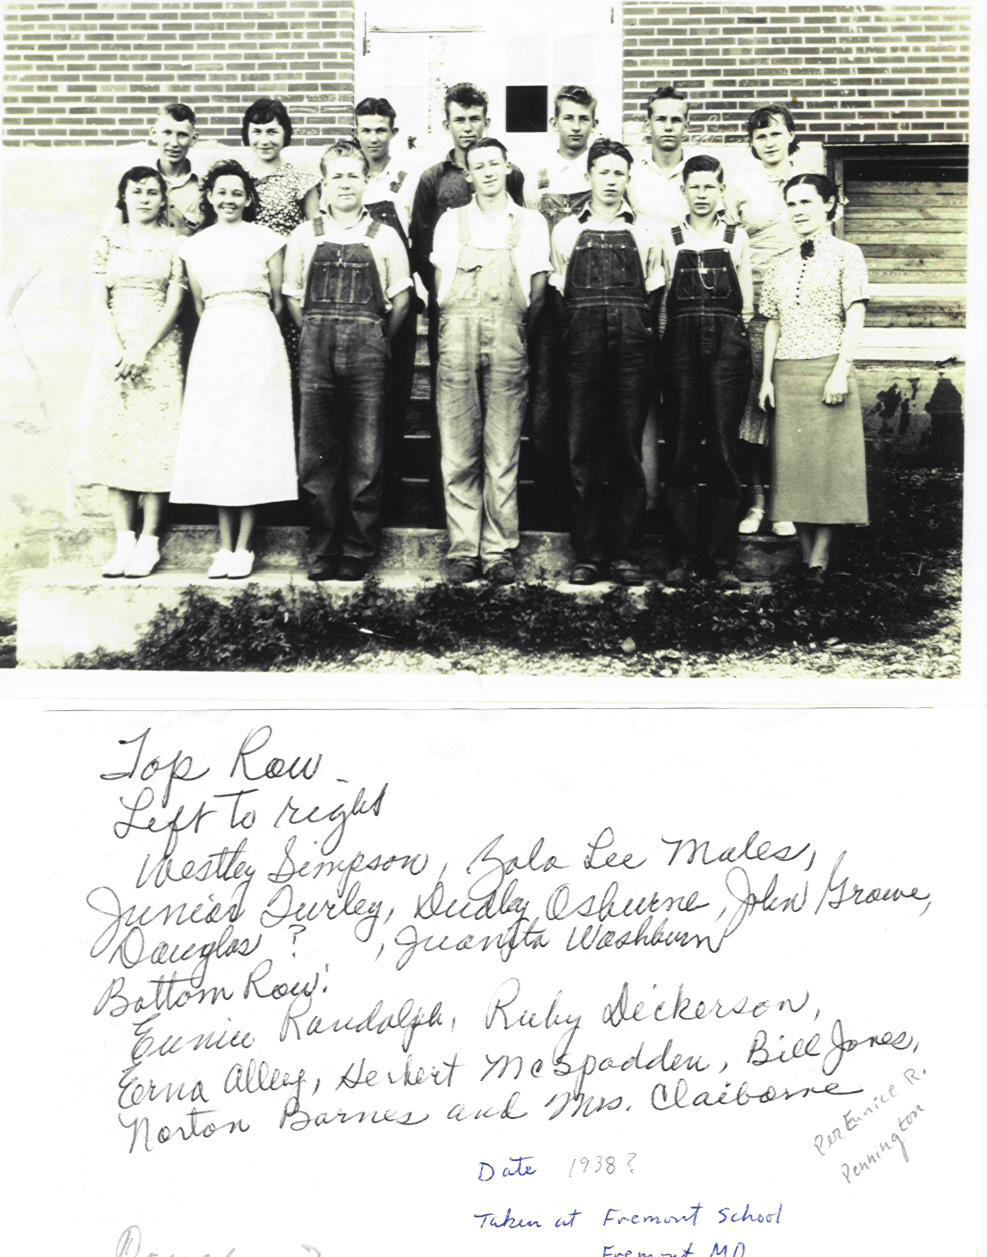 Top Row
Left to right
Westley Simpson, Zola Lee Males,
Junior Turley, Dudley Osburne, John Growe,
Douglas ?, Juanita Washburn
Bottom Row:
Eunice Randolph, Ruby Dickerson,
Erna Alley, Herbert McSpadden, Bill Jones,
Norton Barnes and Mrs. Claiborne
Per Eunice R.
Pennington
Date 1938?
Taken at Fremont School
Fremont, MO